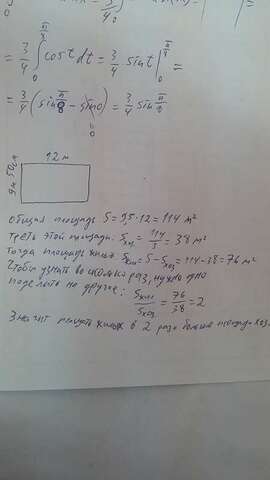 = 3/4 ∫₀^{π/8} cos t dt = 3/4 sin t |₀^{π/8} =
= 3/4 (sin π/8 − sin 0) = 3/4 sin π/8
0
12 м
9м 50см
общая площадь S = 9,5·12 = 114 м²
треть этой площади: Sхоз = 114/3 = 38 м²
Тогда площадь жилых Sжил = S − Sхоз = 114 − 38 = 76 м²
Чтобы узнать во сколько раз, нужно одно
поделить на другое: Sжил/Sхоз = 76/38 = 2
Значит площадь жилых в 2 раза больше площади хоз.